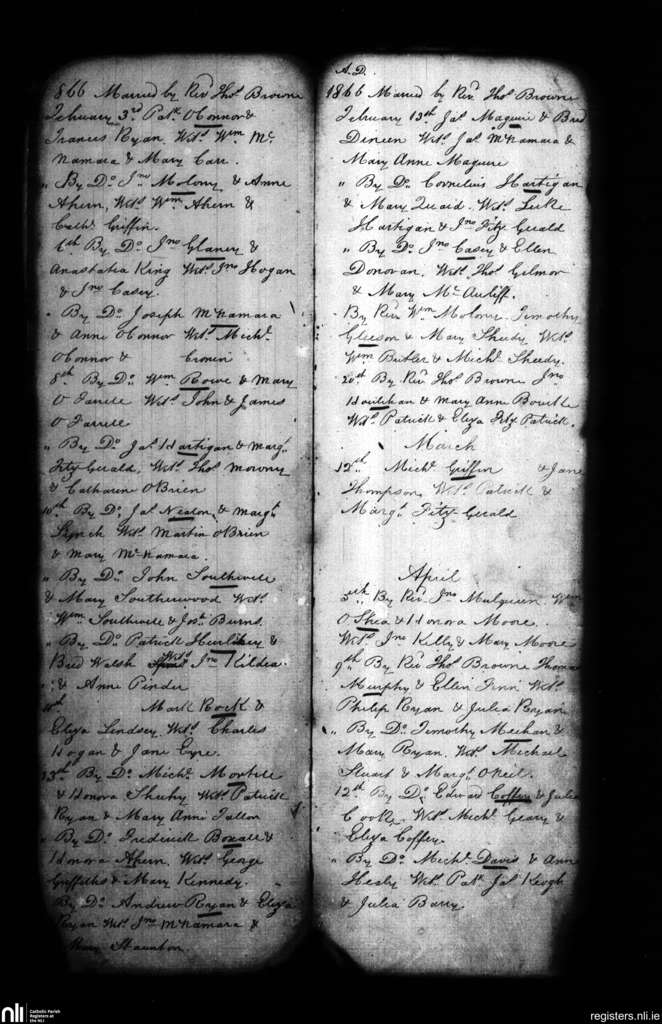 1866 Married by Revd Thos Browne
February 3rd Patk OConnor &
Frances Ryan. Wits Wm Mc
Namara & Mary Carr.
" By Do Jno Molony & Anne
Ahern, Wits Wm Ahern &
Cathe Griffin.
6th By Do Jno Glaney &
Anastatia King Wits Jno Hogan
& Jno Casey.
" By Do Joseph McNamara
& Anne OConnor Wits Michl
OConnor & Cronin
8th By Do Wm Rowe & Mary
O Farrell Wits John & James
O Farrell
" By Do Jas Hartigan & Margt
Fitz Gerald, Wits Thos Morony
& Catharine OBrien
10th By Do Jas Nealon & Margt
Lynch Wits Martin OBrien
& Mary McNamara.
" By Do John Southwell
& Mary Southerwood Wits
Wm Southwell & Josh Burns.
" By Do Patrick Hurlihey &
Brid Walsh Wits Jno Kildea
& Anne Pinder
11th Mark Rock &
Eliza Lindsey Wits Charles
Hogan & Jane Eyre.
13th By Do Michl
& Honora Sheehy Wits Patrick
Ryan & Mary Anne Fallon
" By Do Frederick Boxall &
Honora Ahern. Wits George
Griffiths & Mary Kennedy.
By Do Andrew Ryan & Eliza
Ryan Wits Jno McNamara &
Mary Staunton
A.D.
1866 Married by Revd Thos Browne
February 13th Jas Maguire & Brid
Dineen Wits Jas McNamara &
Mary Anne Maguire
" By Do Cornelius Hartigan
& Mary Quaid. Wits Luke
Hartigan & Jno Fitz Gerald
" By Do Jno Casey & Ellen
Donovan. Wits Thos Gilmor
& Mary Mc Auliff.
By Revd Wm Molony Timothy
Gleeson & Mary Sheedy Wits
Wm Butler & Michl Sheedy.
20th By Revd Thos Browne Jno
Houlihan & Mary Anne Bourke
Wits Patrick & Eliza Fitz Patrick.
March
12th Michl Griffin & Jane
Thompson Wits Patrick &
Margt Fitz Gerald
April
5th By Revd Jno Mulqueen Wm
O Shea & Honora Moore.
Wits Jno Kelly & Mary Moore
9th By Revd Thos Browne Thomas
Murphy & Ellen Finn Wits
Philip Ryan & Julia Ryan
" By Do Timothy Meehan &
Mary Ryan. Wits Michael
Stuart & Margt ONeil.
12th By Do Edward Coffey & Julia
Cooke. Wits Michl Geary &
Eliza Coffey.
" By Do Michl Davis & Anne
Healy Wits Patk Jas Keogh
& Julia Barry
nli
Catholic Parish
Registers at
the NLI
registers.nli.ie